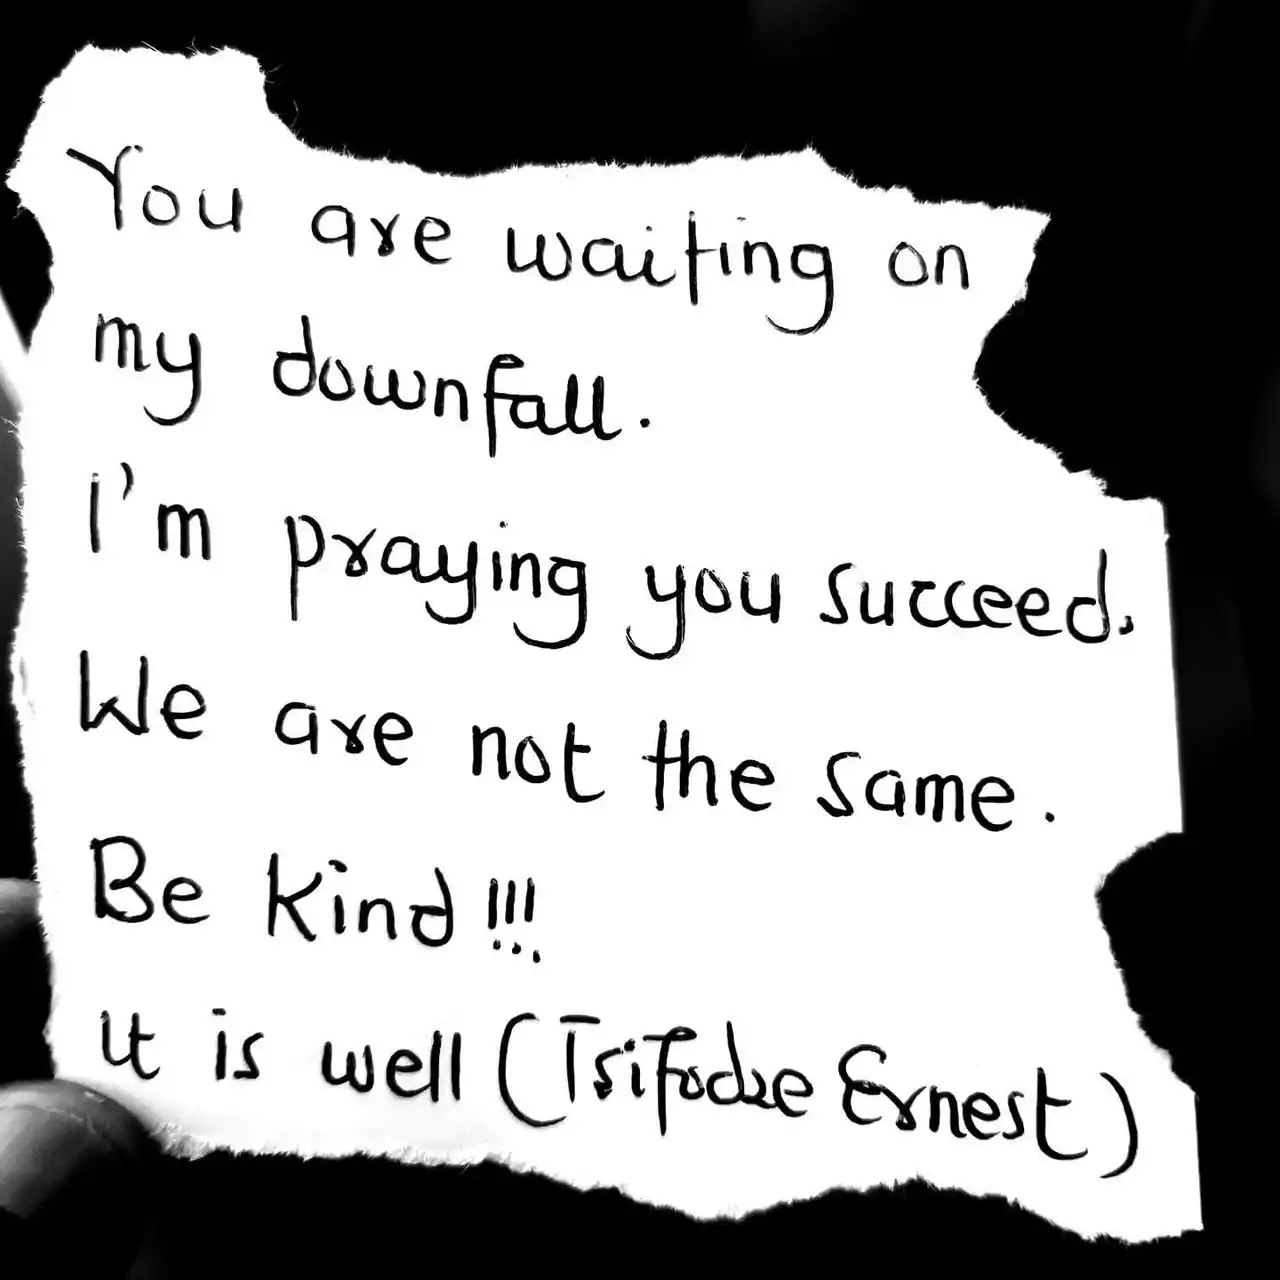 You are waiting on
my downfall.
I'm praying you succeed.
We are not the same.
Be kind!!!
It is well (Tsifodze Ernest)